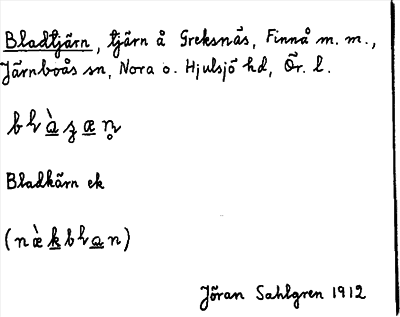 Bladtjärn, tjärn å Greksnäs, Finnå m. m.,
Järnboås sn, Nora o. Hjulsjö hd, Ör. l.
Bladkärn ek
Jöran Sahlgren 1912